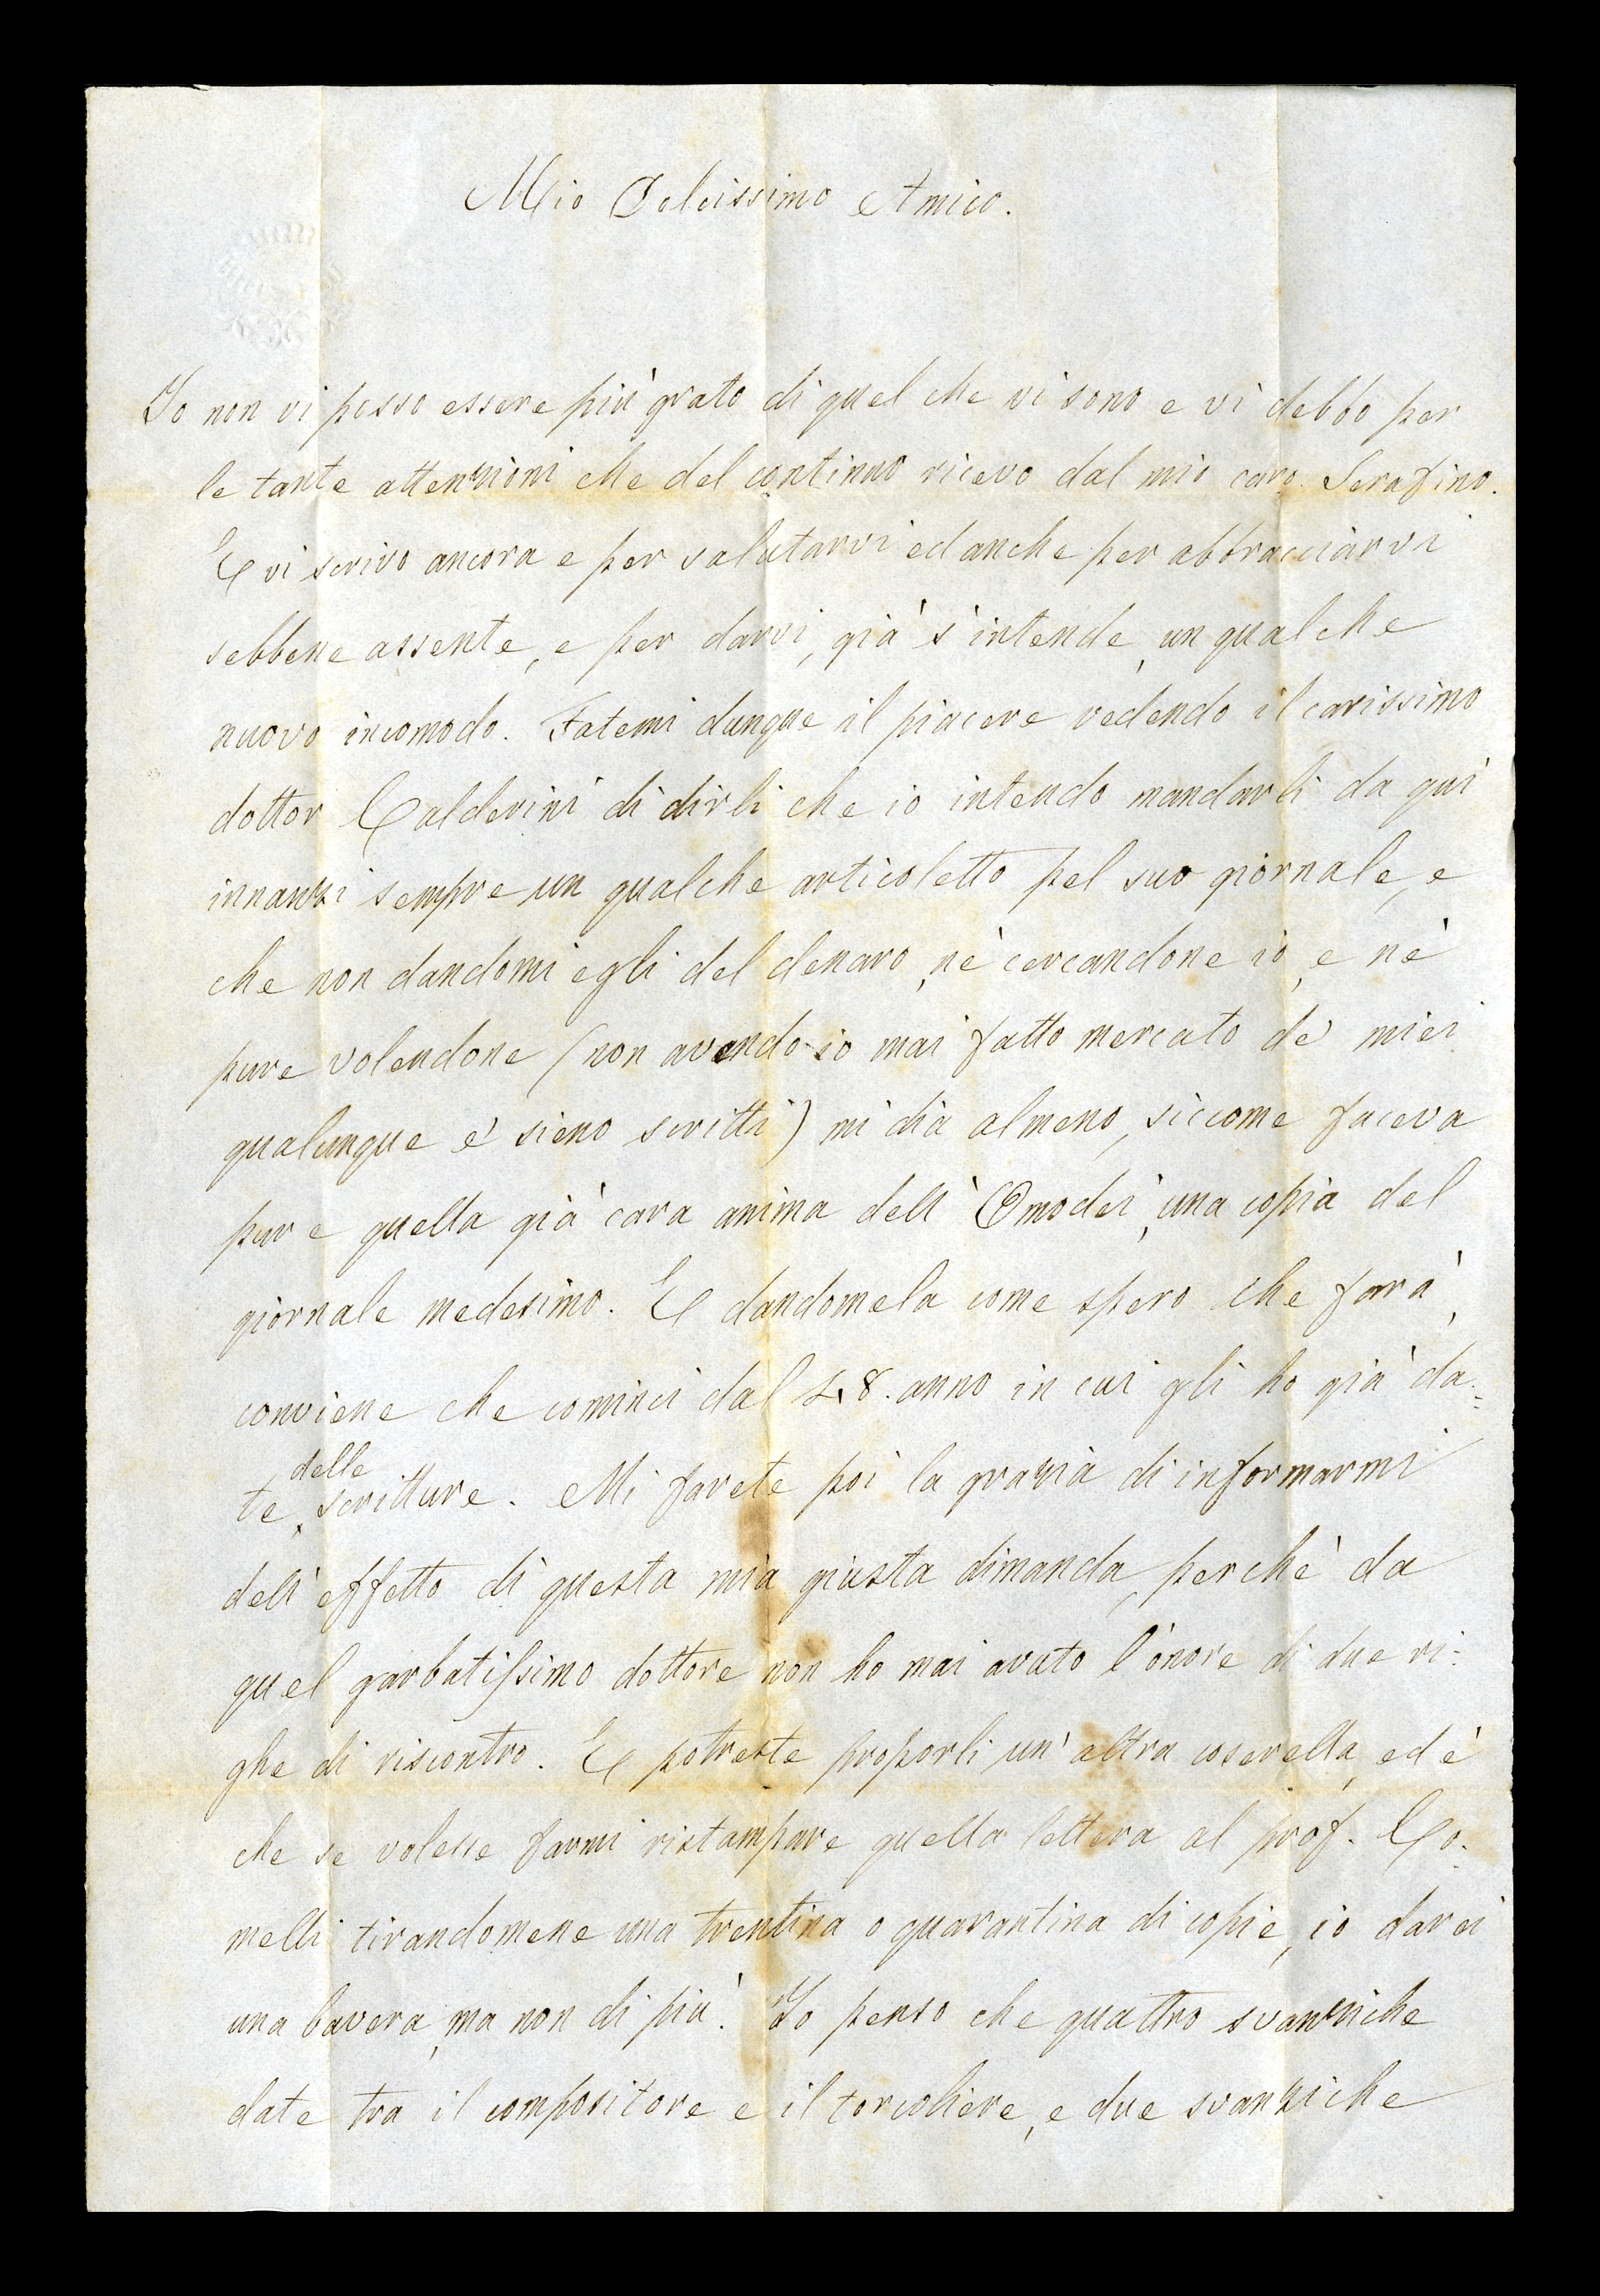 Mio Dolcissimo Amico.
Io non vi posso essere più grato di quel che vi sono e vi debbo per
le tante attenzioni che del continuo ricevo dal mio caro Serafino.
E vi scrivo ancora e per salutarvi ed anche per abbracciarvi
sebbene assente, e per darvi, già s'intende, un qualche
nuovo incomodo. Fatemi dunque il piacere vedendo il carissimo
dottor Calderini di dirli che io intendo mandarli da qui
innanzi sempre un qualche articoletto pel suo giornale, e
che non dandomi egli del denaro, nè cercandone io, e nè
pure volendone (non avendo io mai fatto mercato de' miei
qualunque e' sieno scritti) mi dia almeno, siccome faceva
pure quella già cara anima dell'Omodei, una copia del
giornale medesimo. E dandomela come spero che farà,
conviene che cominci dal 48. anno in cui gli ho già da=
te delle scritture. Mi farete poi la grazia di informarmi
dell'effetto di questa mia giusta dimanda, perchè da
quel garbatissimo dottore non ho mai avuto l'onore di due ri=
ghe di riscontro. E potreste proporli un'altra coserella, ed è
che se volesse farmi ristampare quella lettera al prof. Co=
melli tirandomene una trentina o quarantina di copie, io darei
una bavera, ma non di più. Io penso che quattro svanziche
date tra il compositore e il torcoliere, e due svanziche